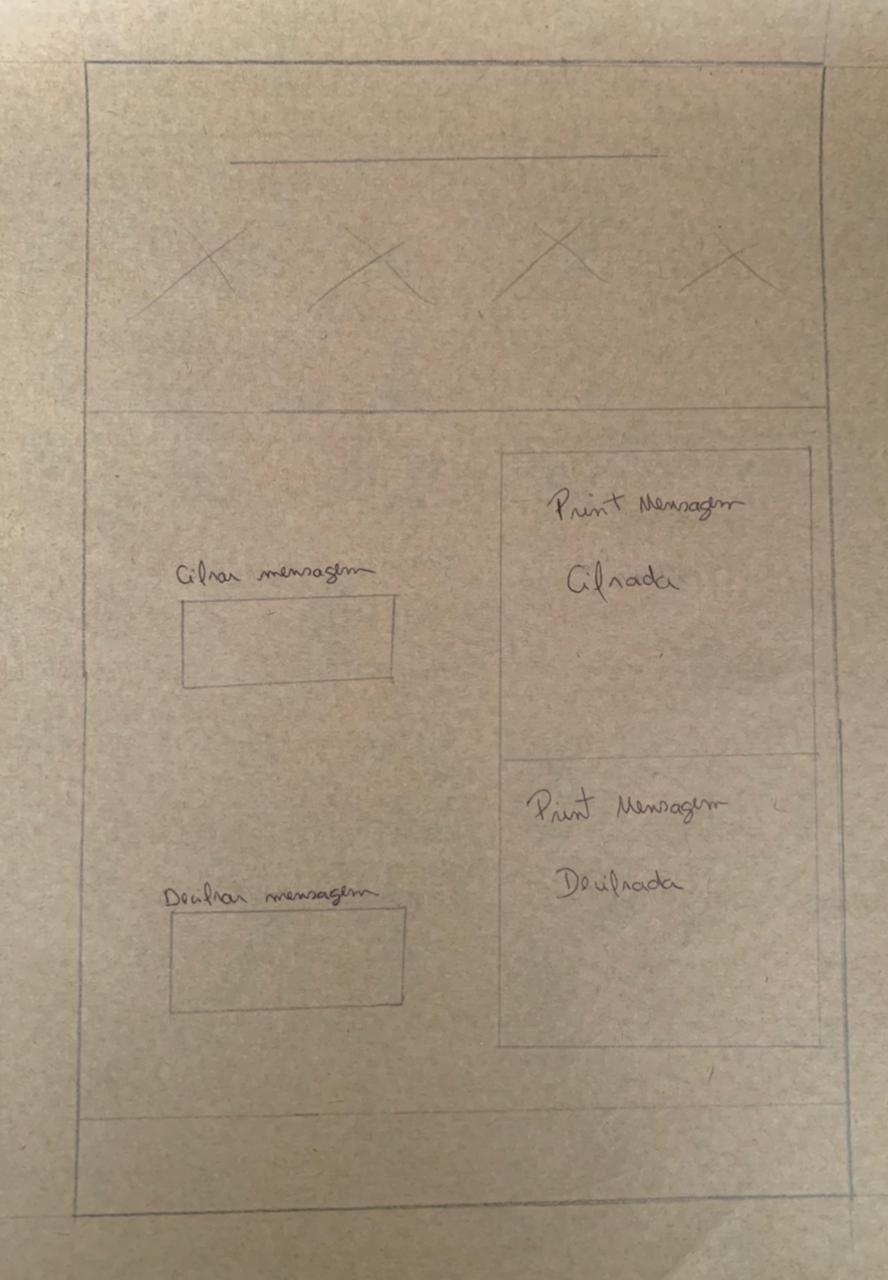 Cifrar mensagem
Decifrar mensagem
Print Mensagem
Cifrada
Print Mensagem
Decifrada